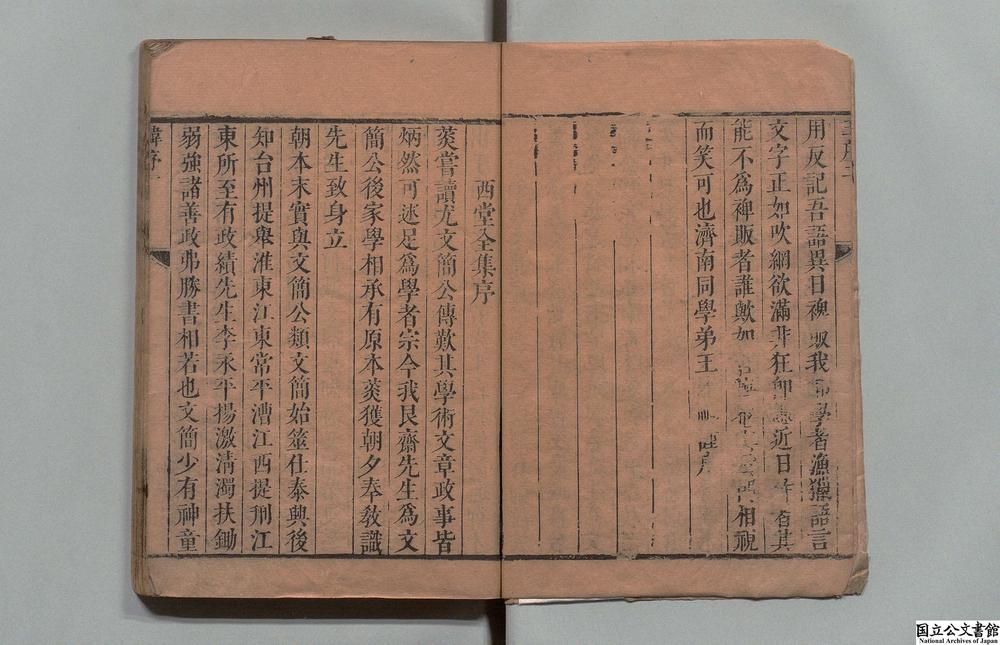 用反記吾語異日裨販我 學者漁獵語言
文字正如吹網欲滿非狂卽愚近日 者其
能不為裨販者誰歟如 相視
而笑可也濟南同學弟王
西堂全集序
葵嘗讀尤文簡公傳歎其學術文章政事皆
炳然可述足為學者宗今我艮齋先生為文
簡公後家學相承有原本葵獲朝夕奉敎識
先生致身立
朝本末實與文簡公類文簡始筮仕泰興後
知台州提舉淮東江東常平漕江西提刑江
東所至有政績先生李永平揚激淸濁扶鋤
弱強諸善政弗勝書相若也文簡少有神童
韓序一
国立公文書館
National Archives of Japan